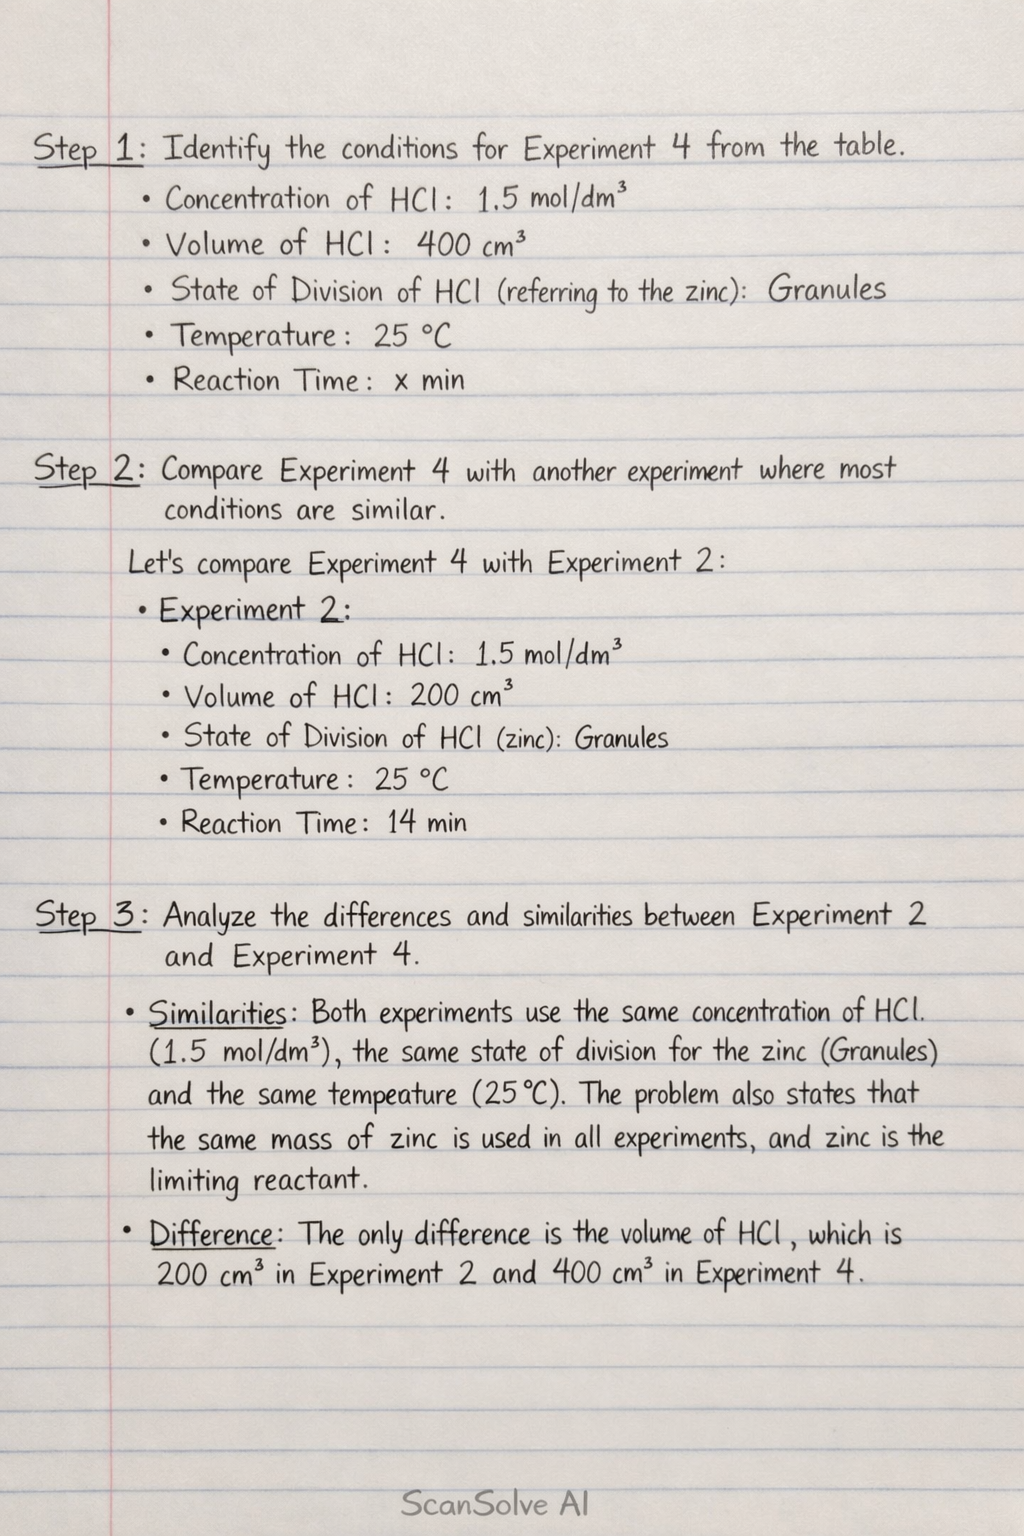 Step 1: Identify the conditions for Experiment 4 from the table.
• Concentration of HCl: 1.5 mol/dm³
• Volume of HCl: 400 cm³
• State of Division of HCl (referring to the zinc): Granules
• Temperature: 25 °C
• Reaction Time: x min
Step 2: Compare Experiment 4 with another experiment where most
conditions are similar.
Let's compare Experiment 4 with Experiment 2:
• Experiment 2:
• Concentration of HCl: 1.5 mol/dm³
• Volume of HCl: 200 cm³
• State of Division of HCl (zinc): Granules
• Temperature: 25 °C
• Reaction Time: 14 min
Step 3: Analyze the differences and similarities between Experiment 2
and Experiment 4.
• Similarities: Both experiments use the same concentration of HCl.
(1.5 mol/dm³), the same state of division for the zinc (Granules)
and the same tempeature (25 °C). The problem also states that
the same mass of zinc is used in all experiments, and zinc is the
limiting reactant.
• Difference: The only difference is the volume of HCl, which is
200 cm³ in Experiment 2 and 400 cm³ in Experiment 4.
ScanSolve AI